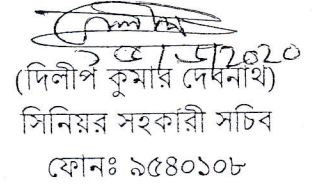 (দিলীপ কুমার দেবনাথ)
সিনিয়র সহকারী সচিব
ফোনঃ ৯৫৪০১০৮